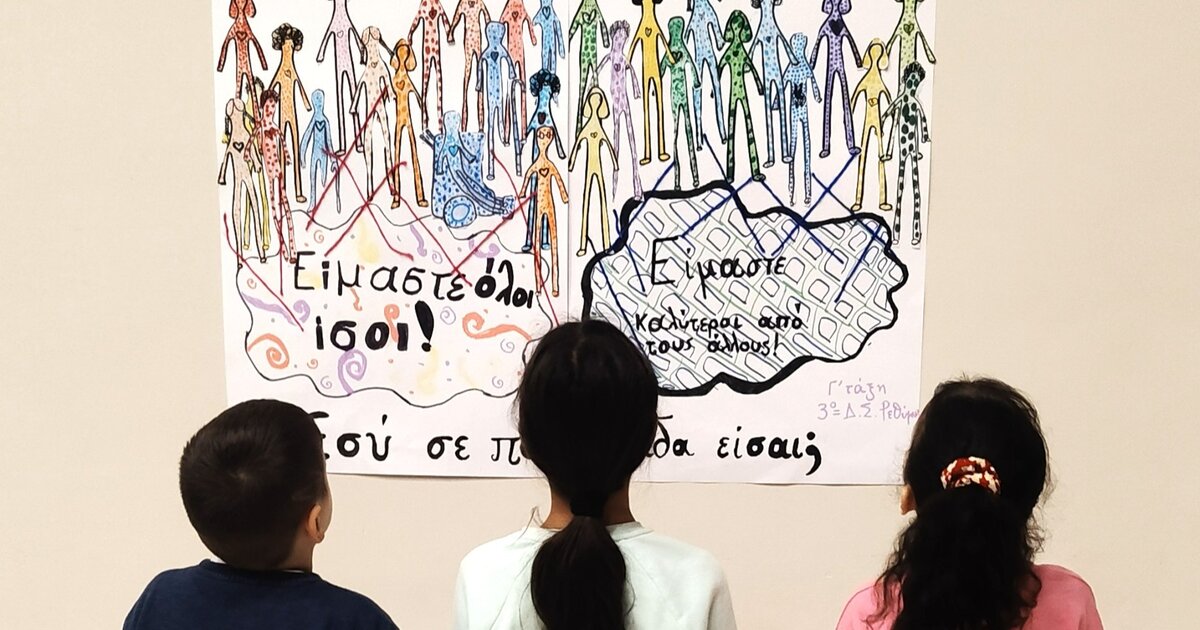 Είμαστε όλοι
ίσοι!
Είμαστε
καλύτεροι από
τους άλλους!
Γ' τάξη
3ο Δ.Σ. Ρεθύμν
Εσύ σε π δα είσαι;